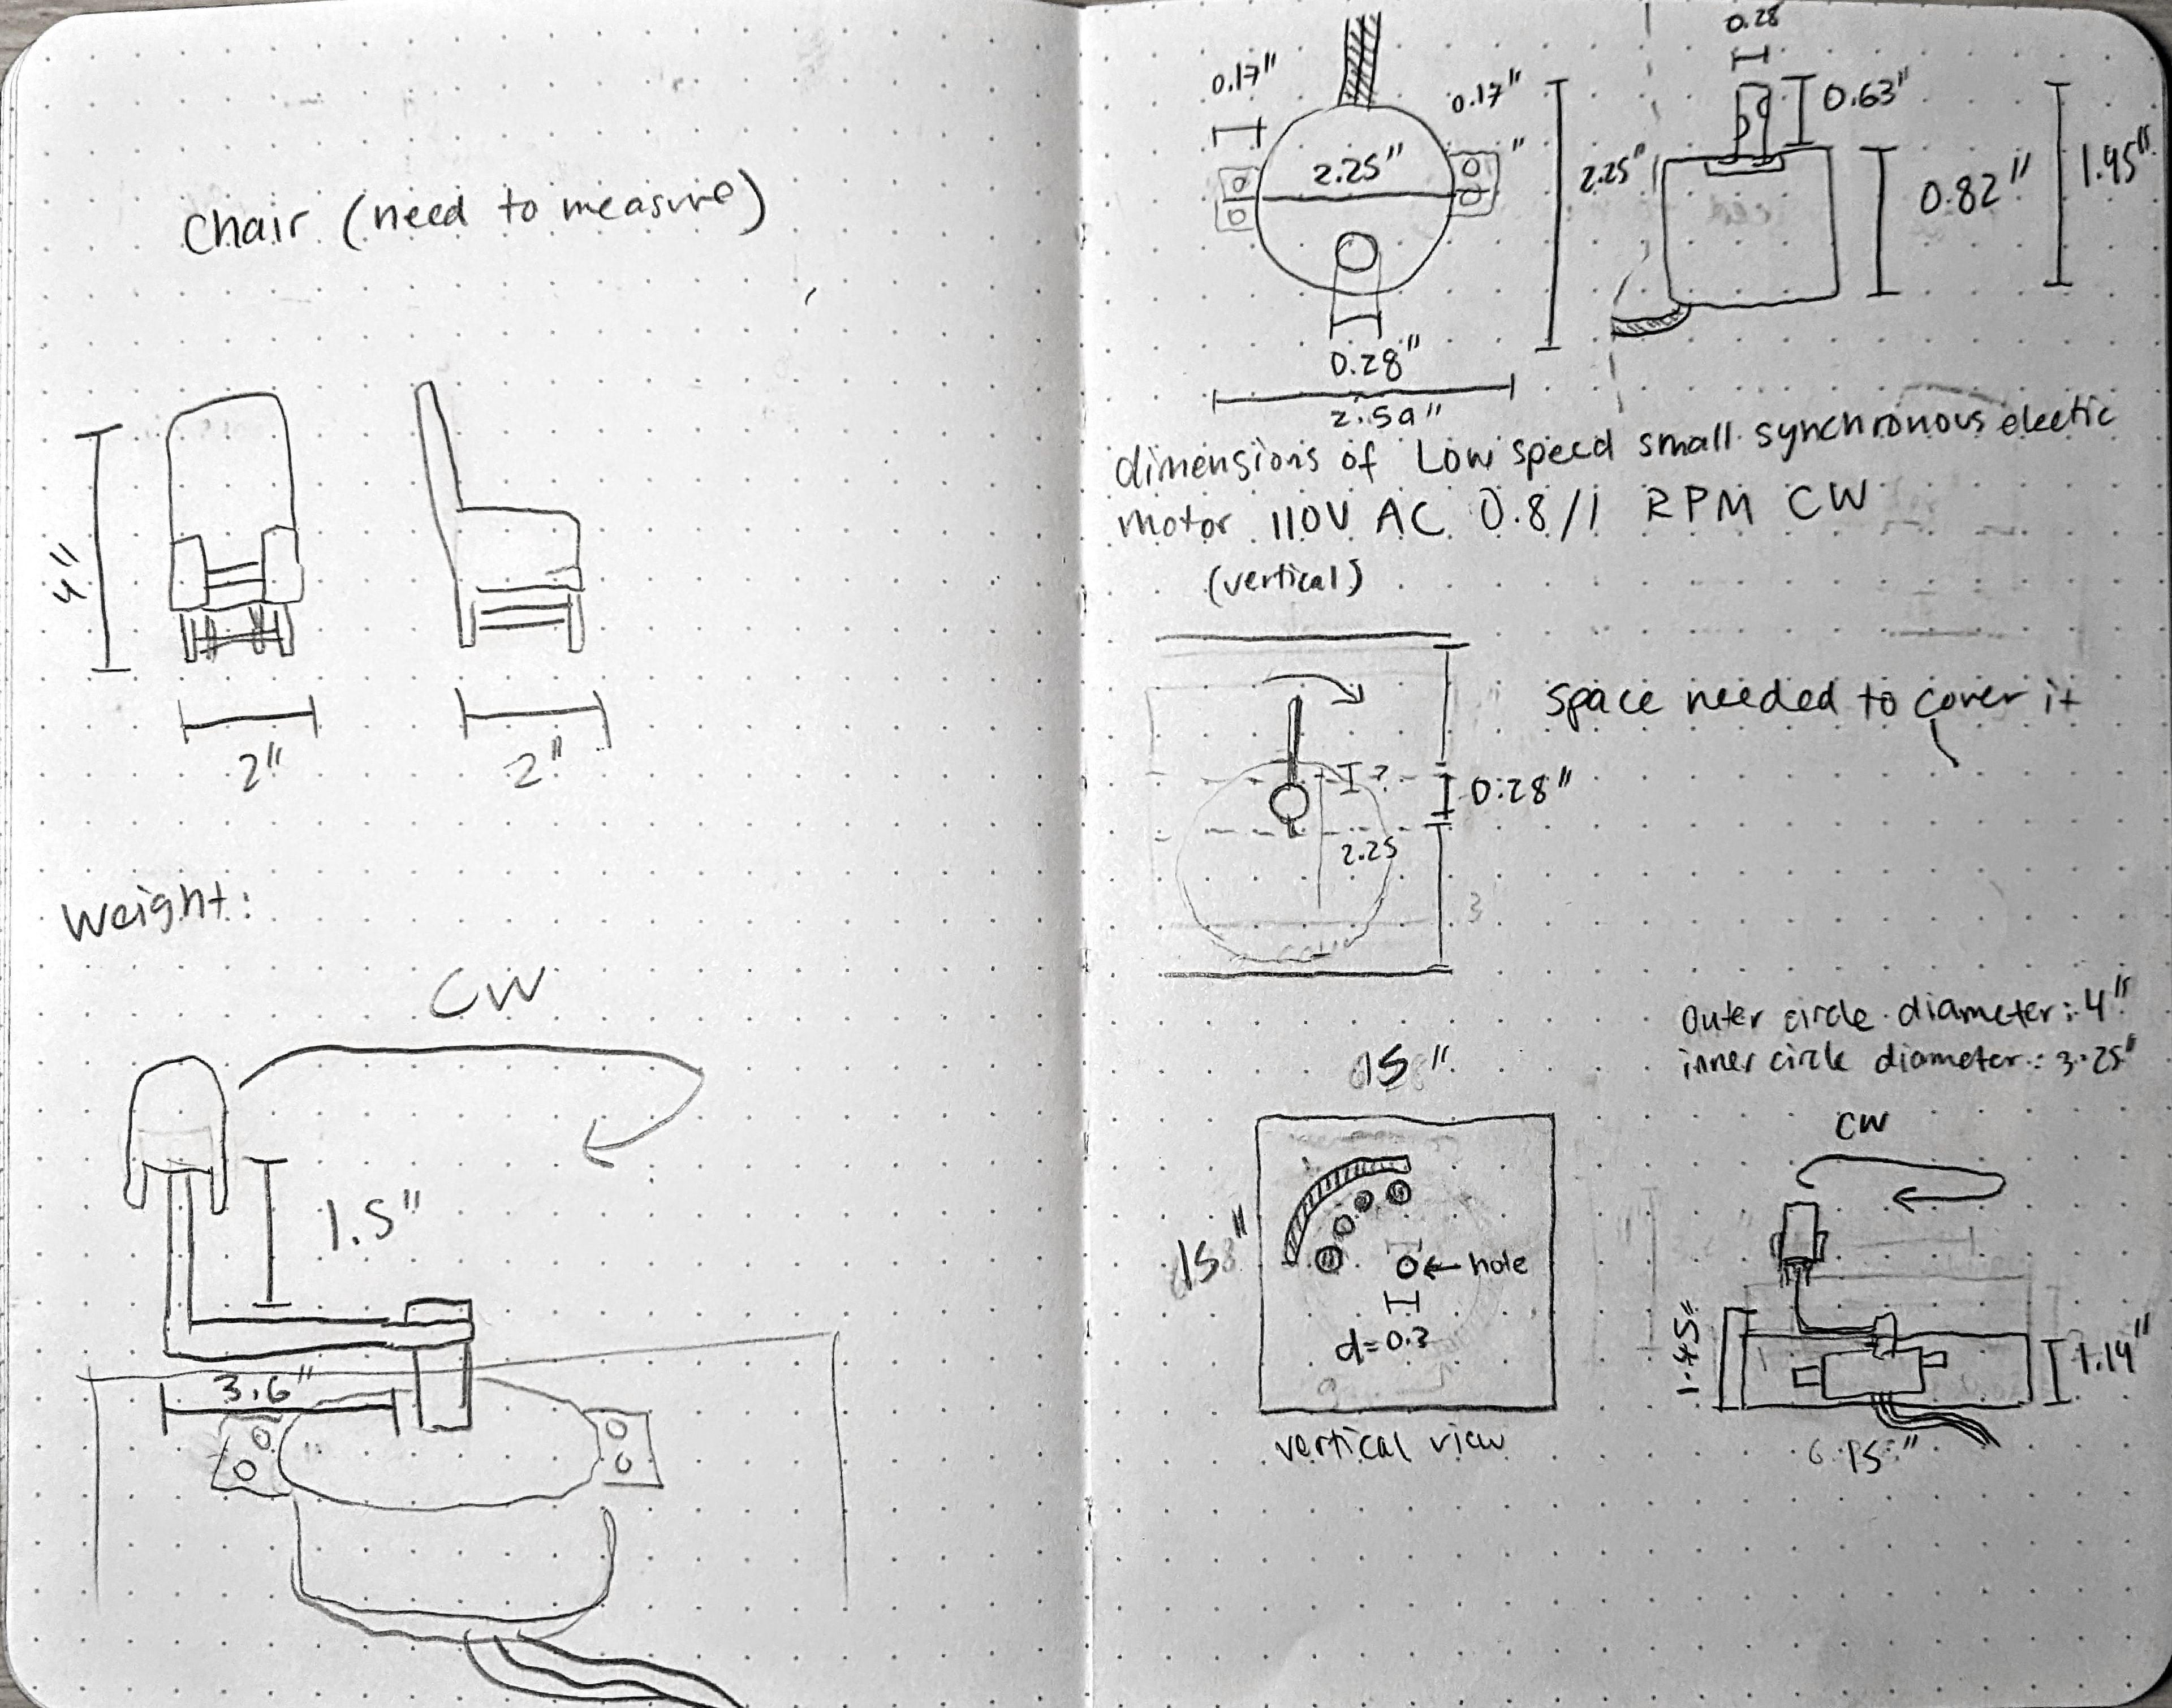 chair (need to measure)
4"
2"
2"
Weight:
CW
1.5"
3.6"
0.28
0.17"
0.17"
0.63"
2.25"
"
2.25"
0.82"
1.45"
0.28"
2.59"
dimensions of Low speed small synchronous electic
motor 110V AC 0.8/1 RPM CW
(vertical)
space needed to cover it
?
0.28"
2.25
3
Outer circle diameter: 4"
inner circle diameter: 3.25"
15"
CW
15"
hole
d=0.3
1.45"
1.14"
vertical view
15"